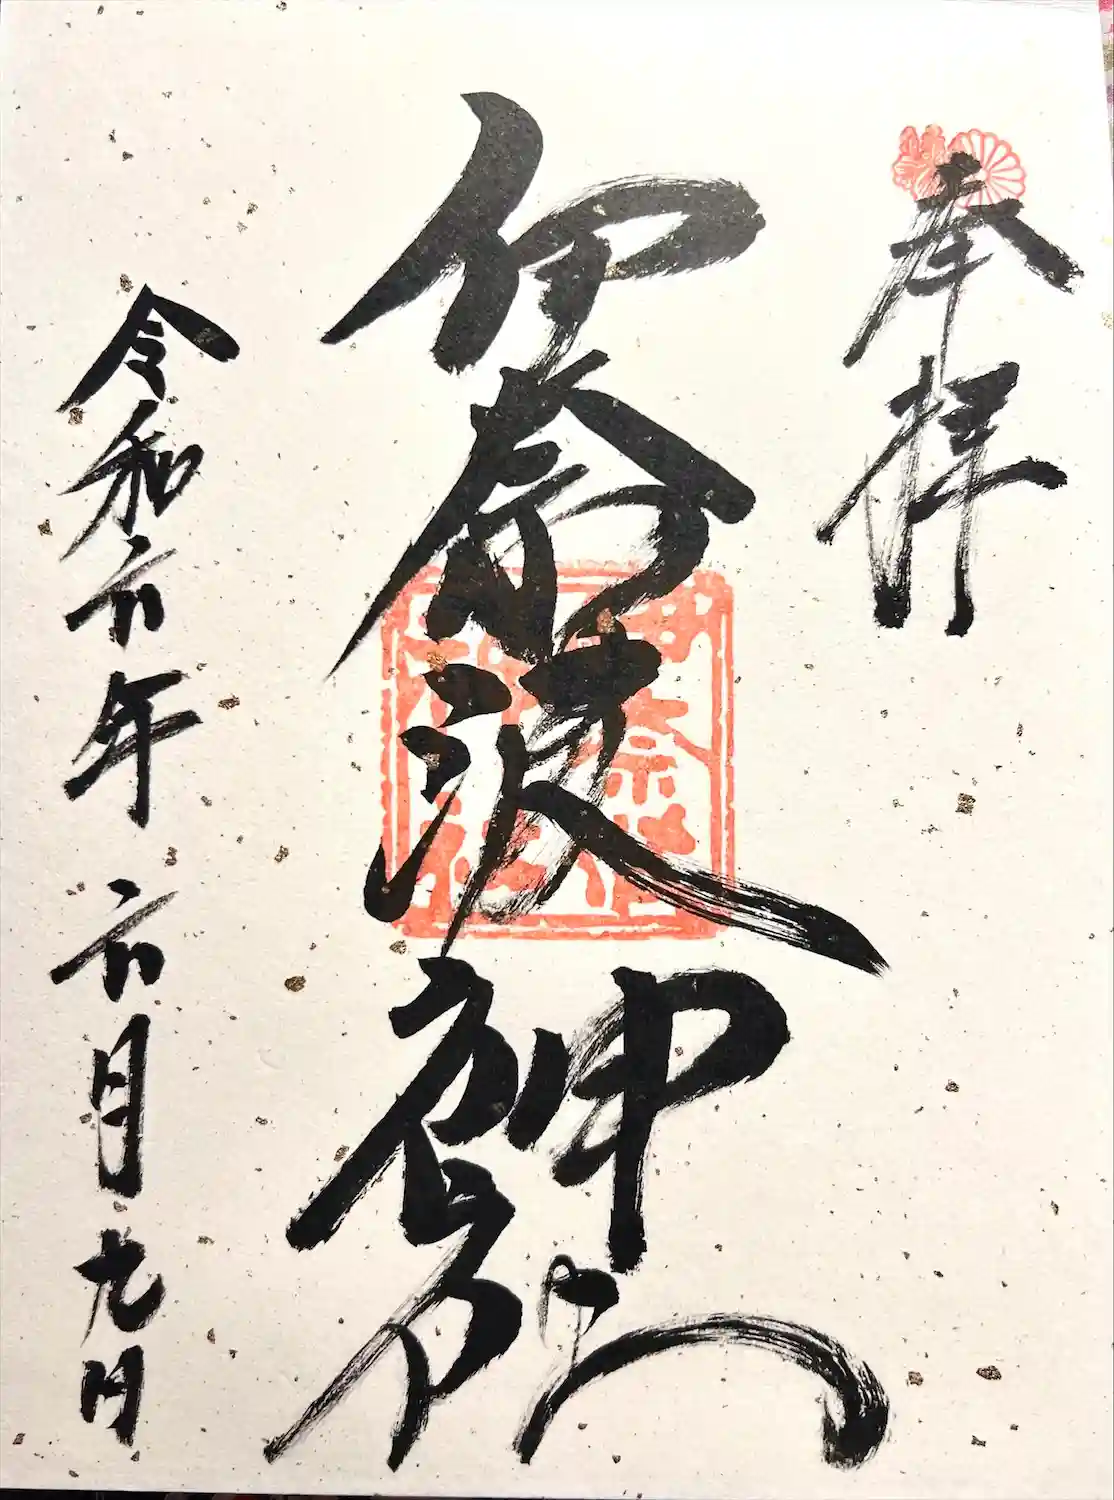 奉拝
伊奈波神社
令和六年六月九日